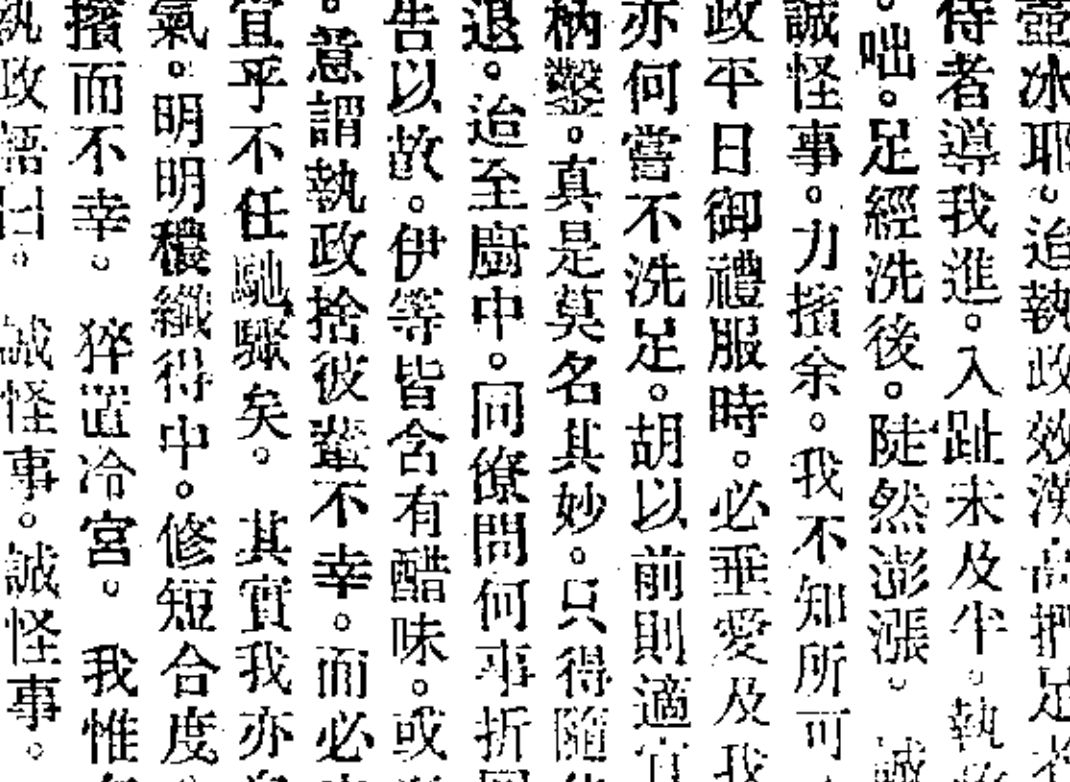 壼冰耶。迨執政效漢高押足
侍者導我進。入趾未及半。執
。咄。足經洗後。陡然澎漲。誠
誠怪事。力擯余。我不知所可
政平日御禮服時。必垂愛及我
亦何嘗不洗足。胡以前則適宜
枘鑿。真是莫名其妙。只得隨
退。迨至廚中。同僚問何事折
告以故。伊等皆含有醋味。或
。意謂執政捨彼輩不幸。而必
宜乎不任馳驟矣。其實我亦
氣。明明穠纖得中。修短合度
擯而不幸。猝置冷宮。我惟
執政語曰。誠怪事。誠怪事。